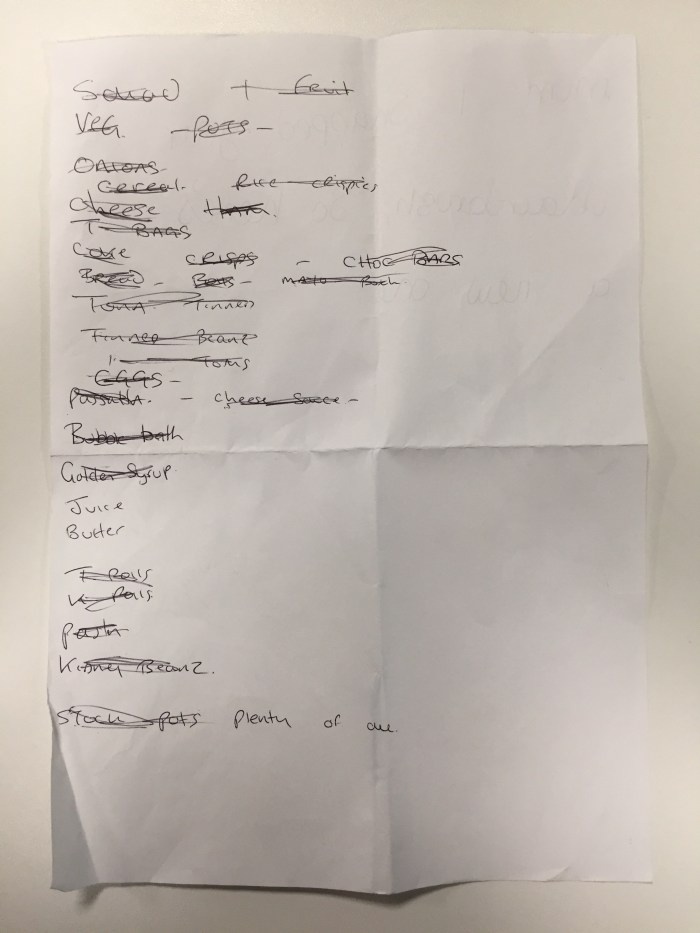 Salad + Fruit
VEG. - POTS -
ONIONS
Cereal. Rice crispies
Cheese HAM.
T-BAGS
Coke CRISPS - CHOC BARS
BREAD - - mayo
TUNA. Tinned
Tinned Beanz
" Toms
EGGS -
PASSATTA. - cheese Sauce -
Bubble bath
Golden Syrup
Juice
Butter
T Rolls
K Rolls
pasta
Kidney Beanz.
Stock pots plenty of all.